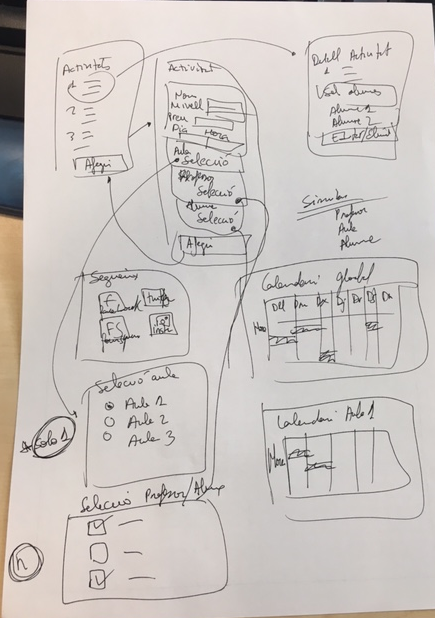 Activitats
1
2
3
Afegir
Activitat
Nom
Nivell
Preu
Dia Hora
Aula
Selecció
Professor
Selecció
Alumne
Selecció
Afegir
Detall Activitat
1
Alumne 1
Alumne 2
Professor
Aula
Alumne
Seguens
f
facebook
FS
insta
Calendari Global
Dll Dm Dx Dj Dv Ds Dm
Hora
Selecció aula
Aula 1
Aula 2
Aula 3
Solo 1
Calendari Aula 1
Hora
Selecció Professor/Alumne